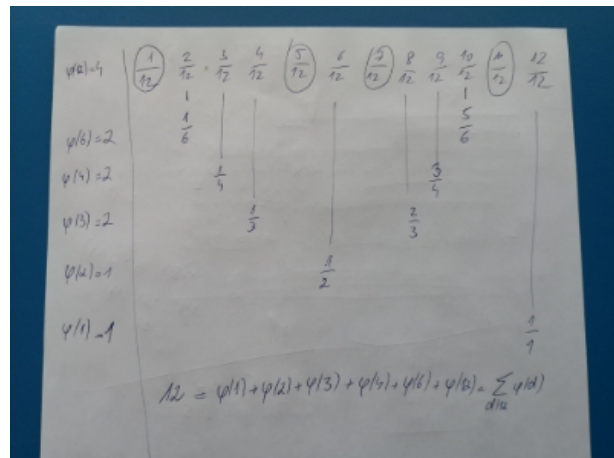 φ(12)=4 1/12 2/12 3/12 4/12 5/12 6/12 7/12 8/12 9/12 10/12 11/12 12/12
φ(6)=2 1/6 5/6
φ(4)=2 1/4 3/4
φ(3)=2 1/3 2/3
φ(2)=1 1/2
φ(1)=1 1/1
12 = φ(1)+φ(2)+φ(3)+φ(4)+φ(6)+φ(12)= ∑ d|12 φ(d)